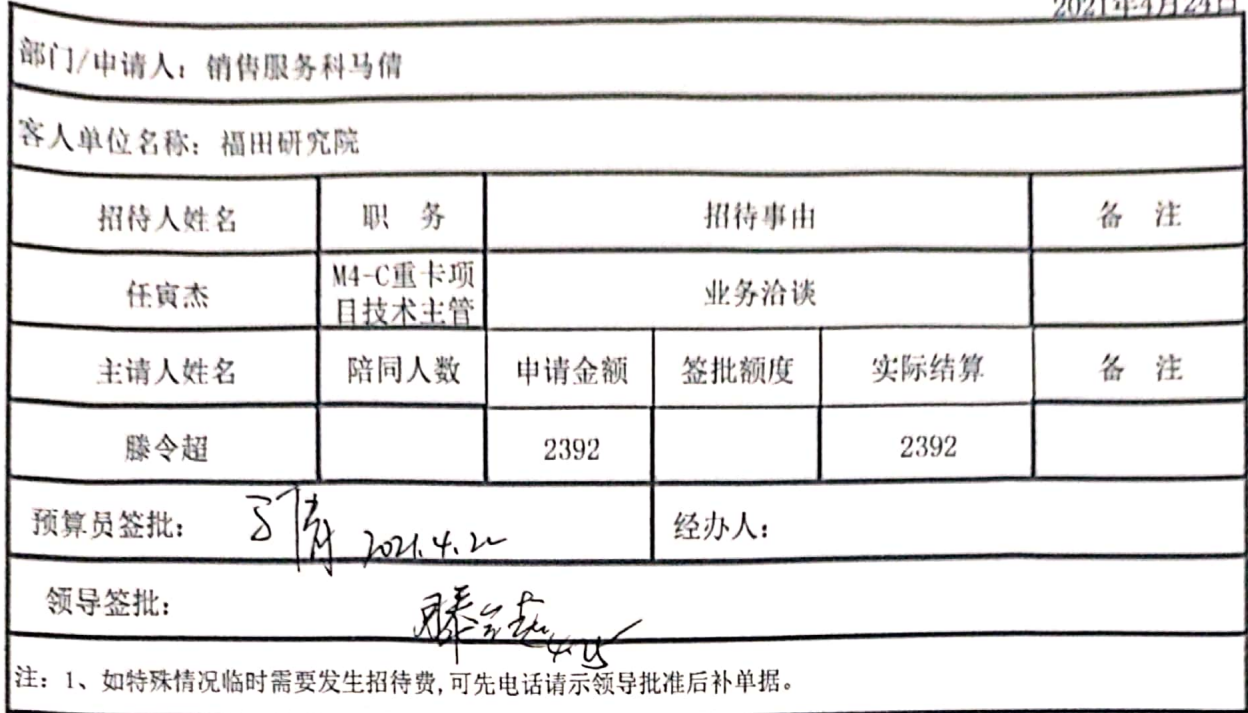 2021年4月24日
部门/申请人：销售服务科马倩
客人单位名称：福田研究院
招待人姓名 职 务 招待事由 备 注
任寅杰 M4-C重卡项目技术主管 业务洽谈
主请人姓名 陪同人数 申请金额 签批额度 实际结算 备 注
滕令超 2392 2392
预算员签批： 马倩 2021.4.2 经办人：
领导签批： 滕令超 4.25
注：1、如特殊情况临时需要发生招待费,可先电话请示领导批准后补单据。